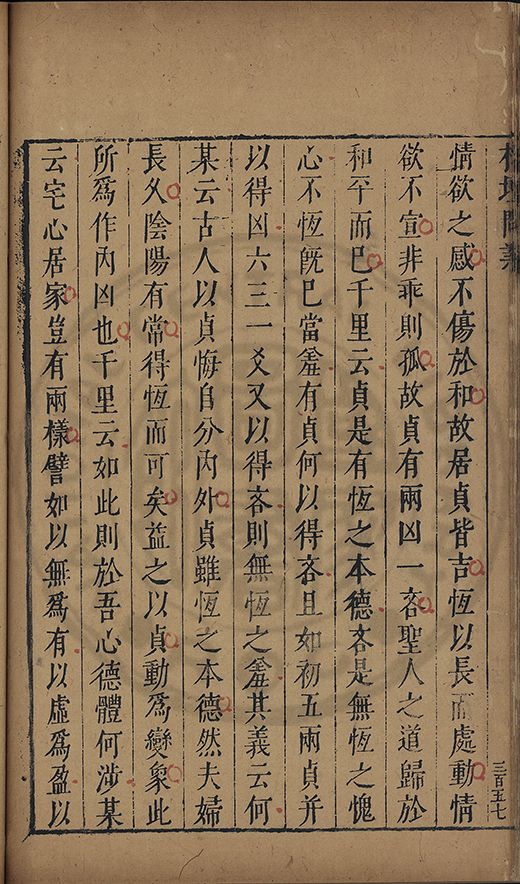 情欲之感不傷於和故居貞皆吉恆以長而處動情
欲不宣非乖則孤故貞有兩凶一吝聖人之道歸於
和平而已千里云貞是有恆之本德吝是無恆之愧
心不恆旣已當羞有貞何以得吝且如初五兩貞并
以得凶六三一爻又以得吝則無恆之羞其義云何
某云古人以貞悔自分內外貞雖恆之本德然夫婦
長久陰陽有常得恆而可矣益之以貞動爲變象此
所爲作內凶也千里云如此則於吾心德體何涉某
云宅心居家豈有兩樣譬如以無爲有以虛爲盈以
三百五七